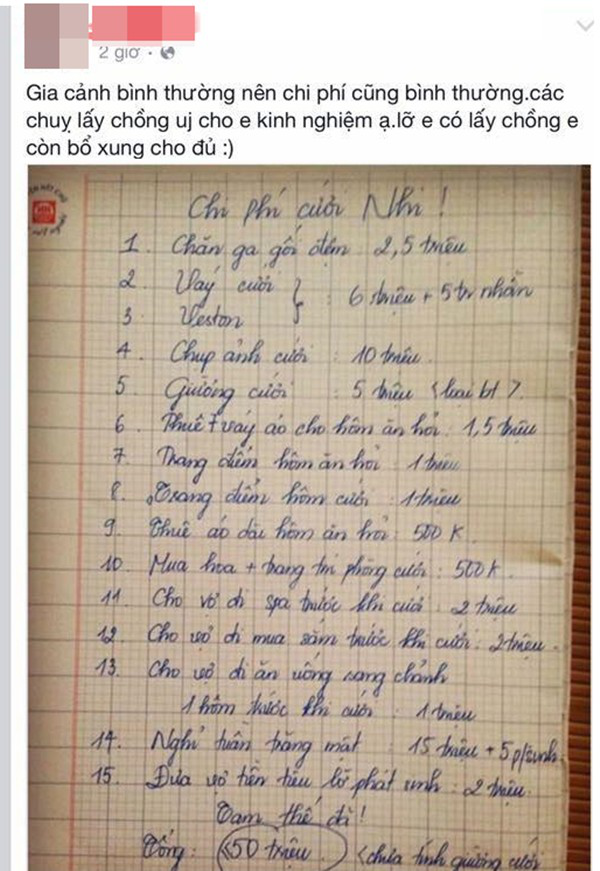 2 giờ ·
Gia cảnh bình thường nên chi phí cũng bình thường.các
chuỵ lấy chồng uj cho e kinh nghiệm ạ.lỡ e có lấy chồng e
còn bổ xung cho đủ :)
Chi phí cưới Nhi !
1. Chăn ga gối đệm : 2,5 triệu
2. Váy cưới } : 6 triệu + 5tr nhẫn
3. Veston
4. Chụp ảnh cưới : 10 triệu.
5. Giường cưới : 5 triệu < loại bt >.
6. Thuê váy áo cho hôm ăn hỏi : 1,5 triệu
7. Trang điểm hôm ăn hỏi : 1 triệu
8. Trang điểm hôm cưới : 1 triệu
9. Thuê áo dài hôm ăn hỏi : 500 K.
10. Mua hoa + trang trí phòng cưới : 500 K.
11. Cho vợ đi spa trước khi cưới : 2 triệu
12. Cho vợ đi mua sắm trước khi cưới : 2 triệu.
13. Cho vợ đi ăn uống sang chảnh
1 hôm trước khi cưới : 1 triệu
14. Nghỉ tuần trăng mật : 15 triệu + 5 p/sinh.
15. Đưa vợ tiền tiêu lỡ phát sinh : 2 triệu.
Tạm thế đi !
Tổng : ≤50 triệu. <chưa tính giường cưới